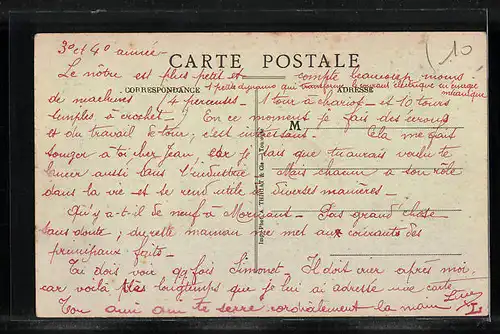 3º et 4º année -
(10
CARTE POSTALE
Le nôtre est plus petit et compte beaucoup moins
CORRESPONDANCE
ADRESSE
1 petite dynamo qui transforme le courant électrique en énergie mécanique
de machines (4 perceuses - 1 tour à chariot - et 10 tours
simples à crochet) En ce moment je fais des écrous
M
et du travail de tour; c'est intéressant. Cela me fait
songer à toi cher Jean, car je sais que tu aurais voulu te
lancer aussi dans l'industrie. Mais chacun a son rôle
dans la vie et se rend utile de diverses manières -
Qu'y a-t-il de neuf à - Pas grand'chose
sans doute; du reste maman me met au courant des
principaux faits -
Tu dois voir qqfois Simonet - Il doit crier après moi
car voilà très longtemps que je lui ai adressé une carte
Ton ami qui te serre cordialement la main
Imp.-Phot. THIRIAT & Cie - Toulouse